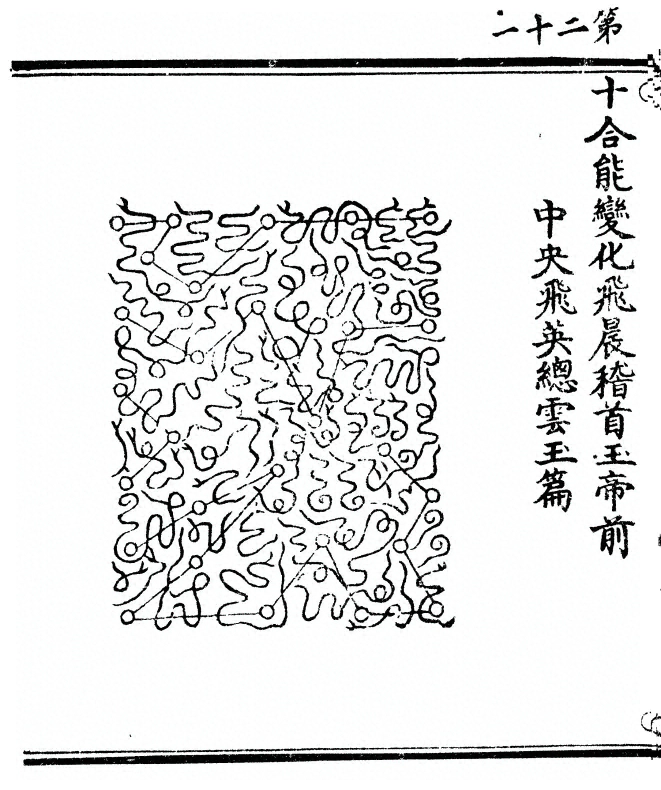 第二十二
十合能變化飛晨稽首玉帝前
中央飛英總雲玉篇